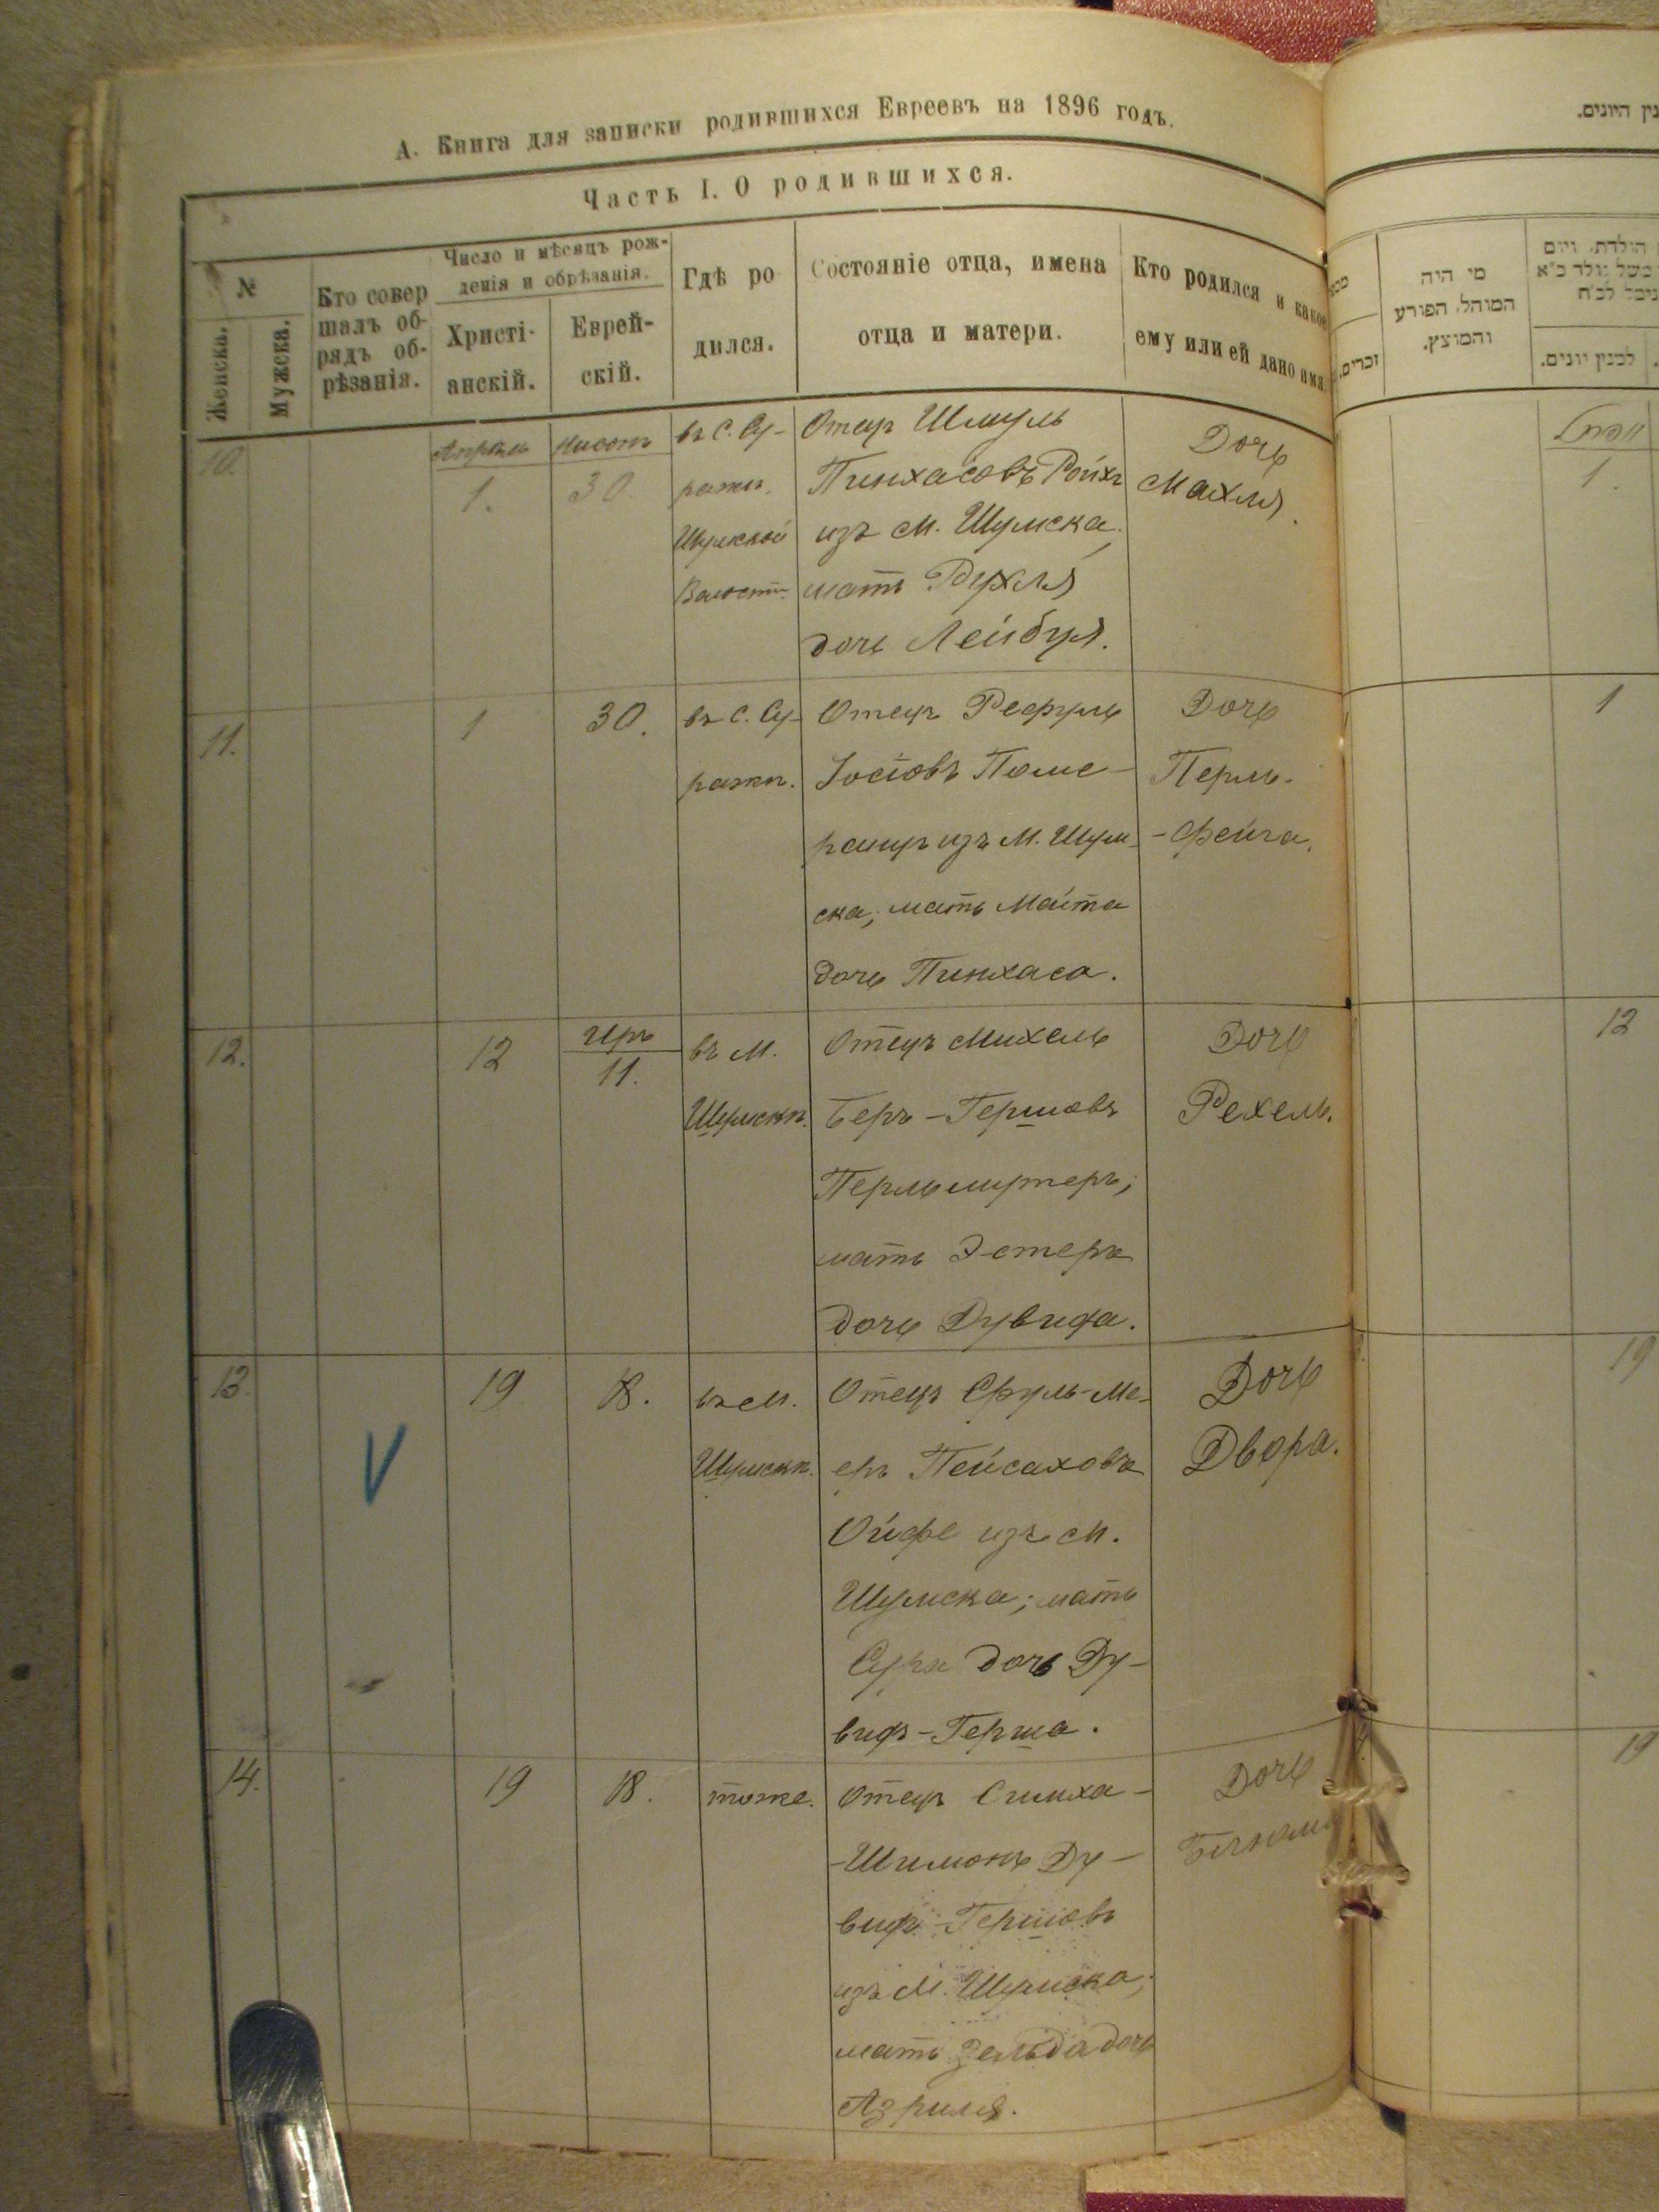 А. Книга для записки родившихся Евреевъ на 1896 годъ.
Часть I. О родившихся.
№
Женска.
Мужска.
Кто совер
шалъ об-
рядъ об-
рѣзанія.
Число и мѣсяцъ рож-
денія и обрѣзанія.
Христі-
анскій.
Еврей-
скій.
Гдѣ ро
дился.
Состояніе отца, имена
отца и матери.
Кто родился и какое
ему или ей дано имя.
10.
Апрель
1.
Нисонъ
30.
въ С. Су-
ражи,
Шумской
Волост.
Отецъ Шмуль
Пинхасовъ Ройхъ
изъ м. Шумска,
мать Рухля
дочь Лейбуля.
Дочь
Махля.
11.
1
30.
въ С. Су-
ражи.
Отецъ
Іосіовъ Поме-
ранцъ изъ М. Шум-
ска; мать Маіта
дочь Пинхаса.
Дочь
Перль-
-Фейга.
12.
12
Иръ
11.
въ М.
Шумскѣ.
Отецъ Михель
Беръ-Гершовъ
мать Эстеръ
дочь Дувида.
Дочь
Рехель.
13.
19
18.
въ м.
Шумскѣ.
Отецъ Сруль-Ме-
еръ Пейсаховъ
Ойфе изъ м.
Шумска; мать
Сура дочь Ду-
видъ-Герша.
Дочь
Двора.
V
14.
19
18.
тоже.
Отецъ Симха-
-Шимонъ Ду-
видъ-Гершовъ
изъ М. Шумска;
мать Зельда дочь
Азриля.
Дочь
מי היה
המוהל הפורע
והמוצץ.
הולדת, ויום
לכנין יונים.
זכרים.
1.
1
12
19
19